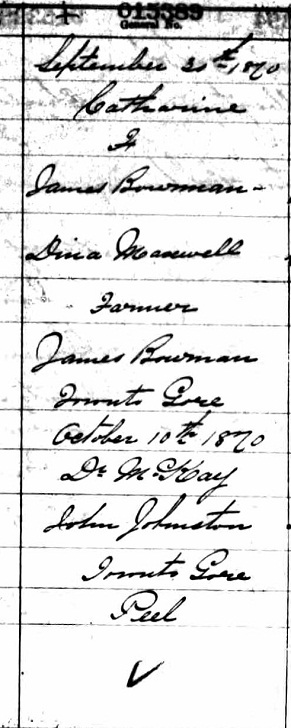 015389
General No.
September 30th, 1870
Catharine
F
James Bowman
Dina Maxwell
Farmer
James Bowman
Toronto Gore
October 10th 1870
Dr McKay
John Johnston
Toronto Gore
Peel